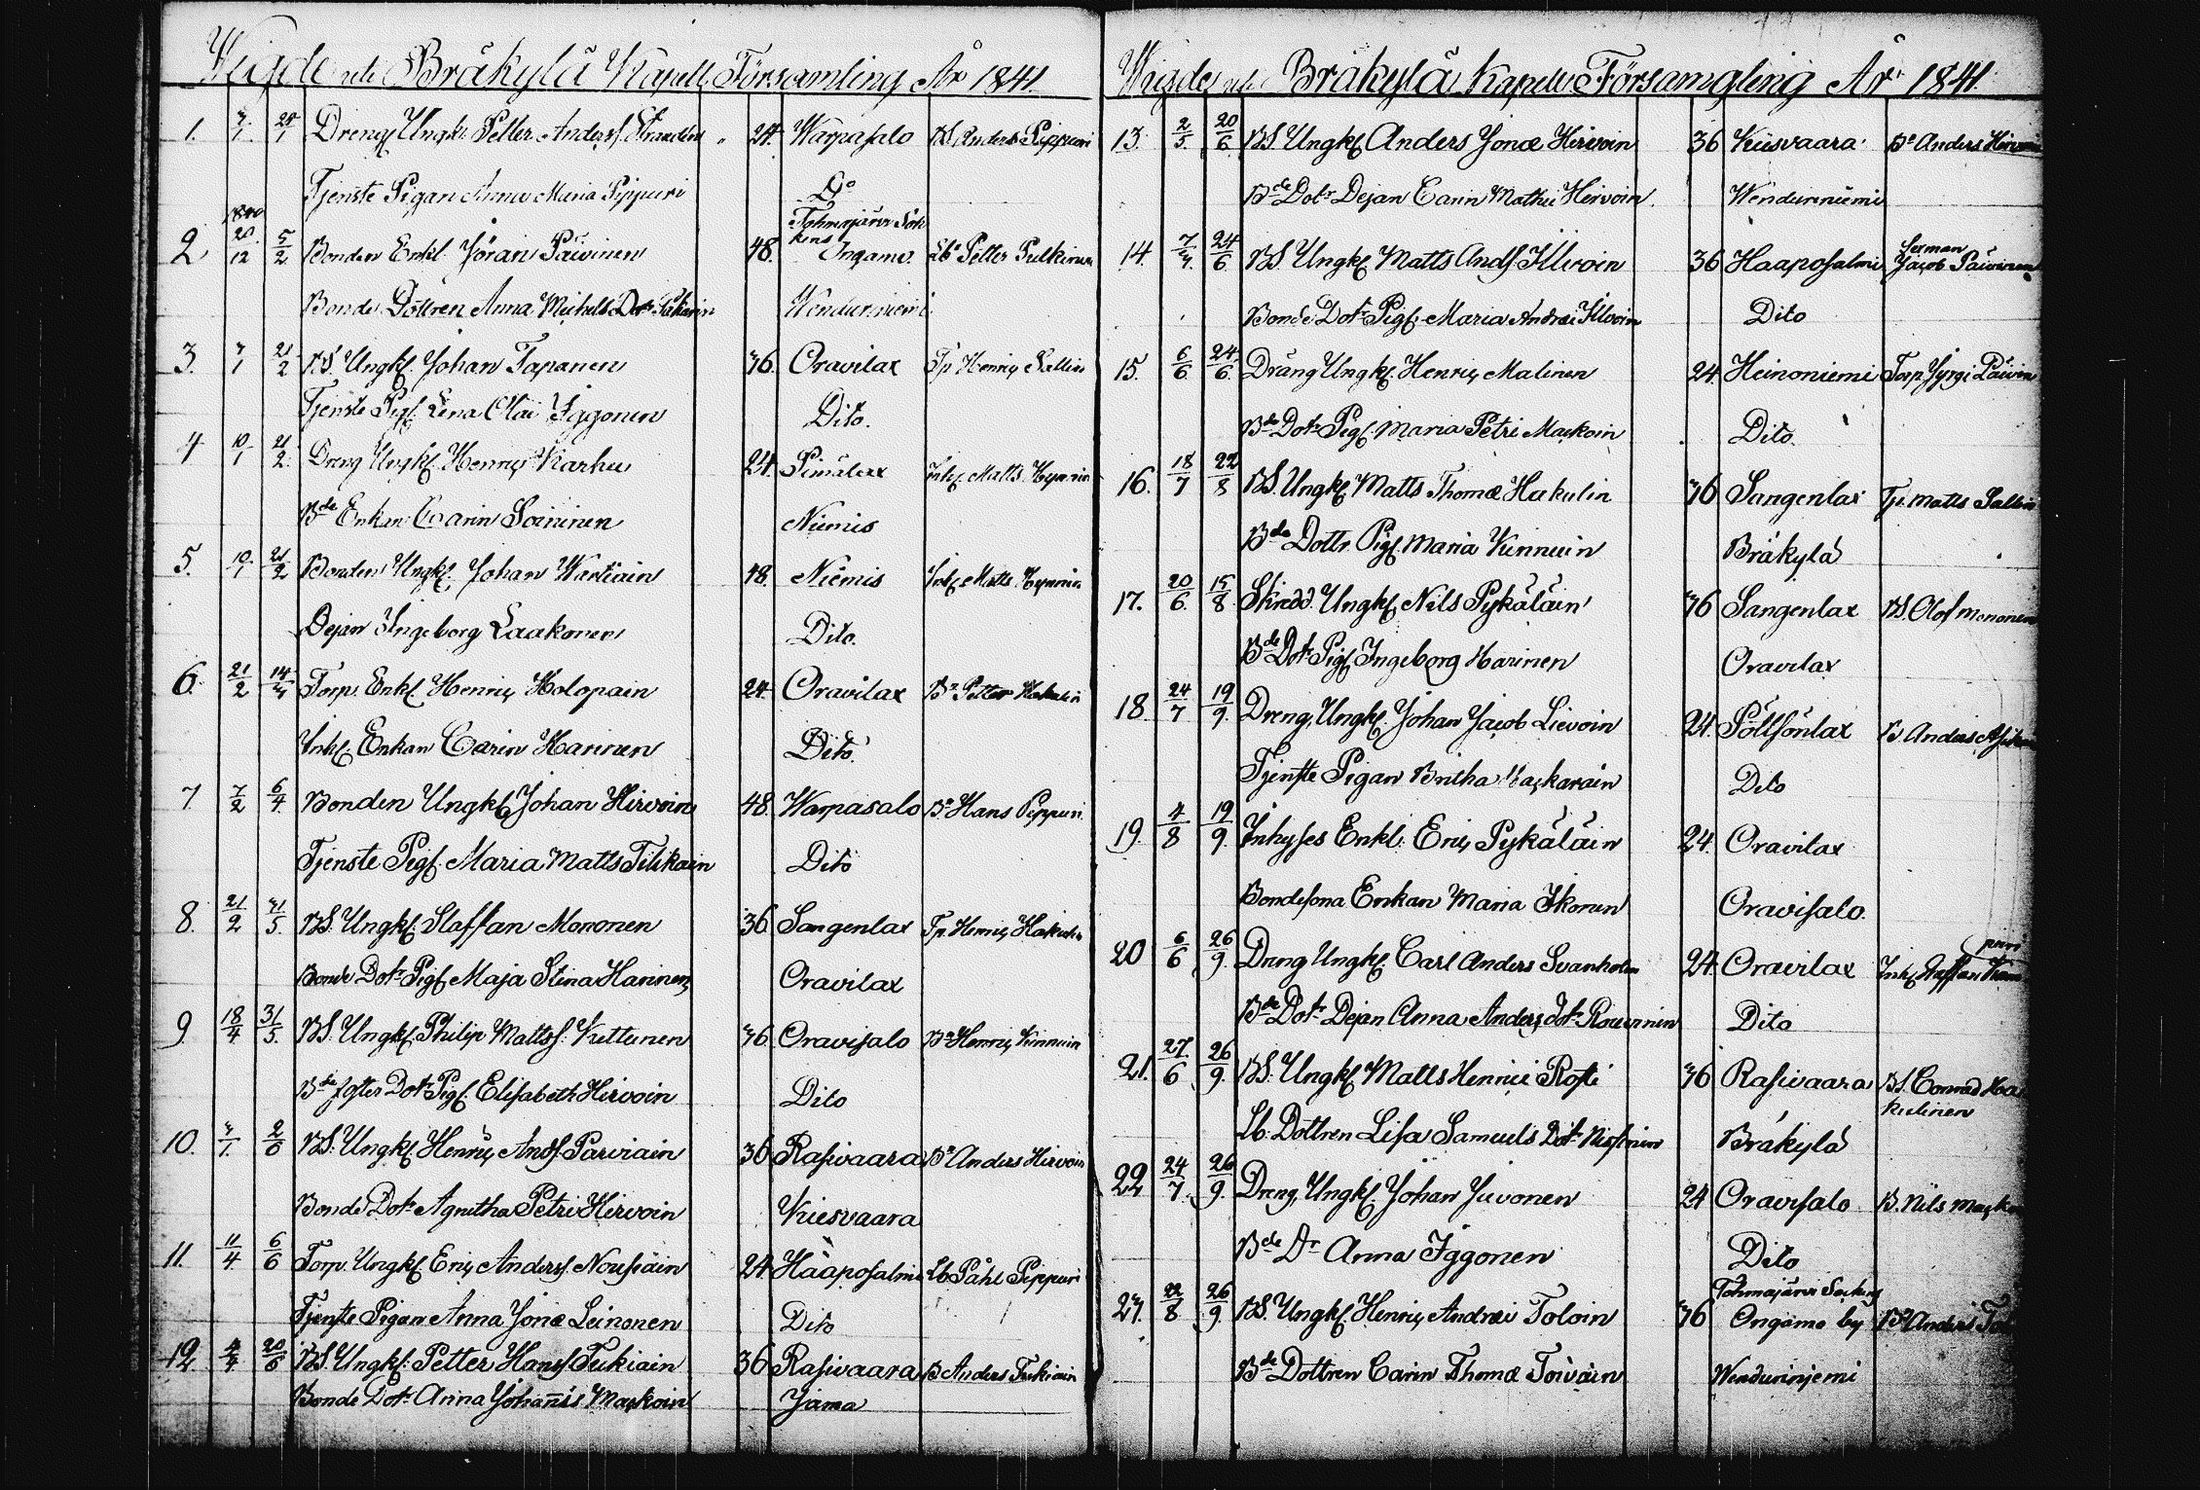 Wigde uti Bräkylä Kapell Församling År 1841.
1. 3/1 24/1 Dreng Ungk. Petter Anderss. Strandén 24. Warpasalo BS. Anders Pippuri
Tjenste Pigan Anna Maria Pippuri Do
1840 Tohmajärvi Sok
2 20/12 5/2 Bonden Enkl. Jöran Päivinen 48. kens Ongamo Lb Petter Pulkinen
Bonde Dottren Anna Michels Dotr Wenduriniemi
3. 3/1 21/2 BS. Ungk. Johan Tapanen 36. Oravilax Tp Henric Sallin
Tjenste Pig. Lena Olai Iggonen Dito.
4 10/1 21/2 Dreng Ungk. Henric Karhu 24. Pimälax Inh. Matts
Bde Enkan Carin Soininen Niemis
5. 10/1 21/2 Bonden Ungk. Johan Wartiain 48. Niemis Inh. Matts
Dejan Ingeborg Laakonen Dito.
6. 21/2 14/3 Torp. Enkl Henric Holopain 24. Oravilax Bn Petter Hakulin
Inh. Enkan Carin Harinen Dito.
7 7/2 6/4 Bonden Ungk. Johan Hirvoin 48. Warpasalo Bn Hans Pippuri
Tjenste Pig. Maria Matts Tilikain Dito
8. 21/2 31/5. BS. Ungk. Staffan Mononen 36. Sangenlax Tp. Henric Hakulin
Bonde Dotr Pig. Maja Stina Harinen Oravilax
9 18/4 31/5. BS. Ungk. Philip Mattss. Kuttunen 36. Oravisalo Bn Henric Kinnuin
Bde Dotr Pig. Elisabeth Hirvoin Dito
10. 3/1. 2/6 BS. Ungk. Henric Ands. Parviain 36 Rasivaara Bn Anders Hirvoin
Bonde Dotr Agnitha Petri Hirvoin Kiesvaara
11. 11/4 6/6 Torp. Ungk. Eric Anderss. Nousiain 24. Haaposalmi Lb Påhl Pippuri
Tjenste Pigan Anna Jonæ Leinonen Dito
12 4/4 20/6 BS. Ungk. Petter Hanss. Tukiain 36 Rasivaara B Anders Tukiain
Bonde Dotr Anna Johannis Mackoin Jama
Wigde uti Bräkylä Kapells Församgling År 1841.
13. 2/5. 20/6 BS. Ungk. Anders Jonæ Hirvoin 36 Kiisvaara Bn Anders Hirvoin
Bde Dotr Dejan Carin Mathei Hirvoin. Wenduriniemi
14. 7/3. 24/6 BS. Ungk. Matts Ands. Illvoin 36 Haaposalmi Sexman Jacob Päivinen
Bonde Dotr Pig. Maria Andræi Illvoin Dito
15. 6/6 24/6. Dräng Ungk. Henric Malinen 24. Heinoniemi Torp. Jyrgi Päivin
Bde Dotr Pig. Maria Petri Mackoin Dito.
16. 18/7 22/8 BS. Ungk. Matts Thomæ Hakulin 36 Sangenlax Tp. Matts Sallin
Bde Dottr Pig. Maria Kinnuin Bräkylä
17. 20/6. 15/8 Skredd. Ungk. Nils Pykäläin 36 Sangenlax BS. Olof Mononen
Bde Dotr Pig. Ingeborg Harinen Oravilax
18. 24/7 19/9. Dreng. Ungk. Johan Jacob Lievoin 24. Pöllsönlax B Anders
Tjenste Pigan Britha Dito
19. 4/8 19/9. Inhyses Enkl. Eric Pykäläin 24. Oravilax
Bondesona Enkan Maria Ikonen Oravisalo.
20 6/6 26/9. Dreng Ungk. Carl Anders Svanholm 24. Oravilax Inh. Staffan
Bde Dotr Dejan Anna Anders dotr Rouvinen Dito
21. 27/6 26/9. BS. Ungk. Matts Henrici Rosti 36 Rasivaara BS. Conrad Ha
kulinen
Lb. Dottren Lisa Samuels Dotr Bräkylä
22 24/7. 26/9. Dreng. Ungk. Johan Juvonen 24 Oravisalo B. Nils
Bde Dr Anna Iggonen Dito
Tohmajärvi Sockn
23. 22/8 26/9. BS. Ungk. Henric Andræi Toloin 36 Ongamo by Bn Anders
Bde Dottren Carin Thomæ Toivain Wendurinjemi